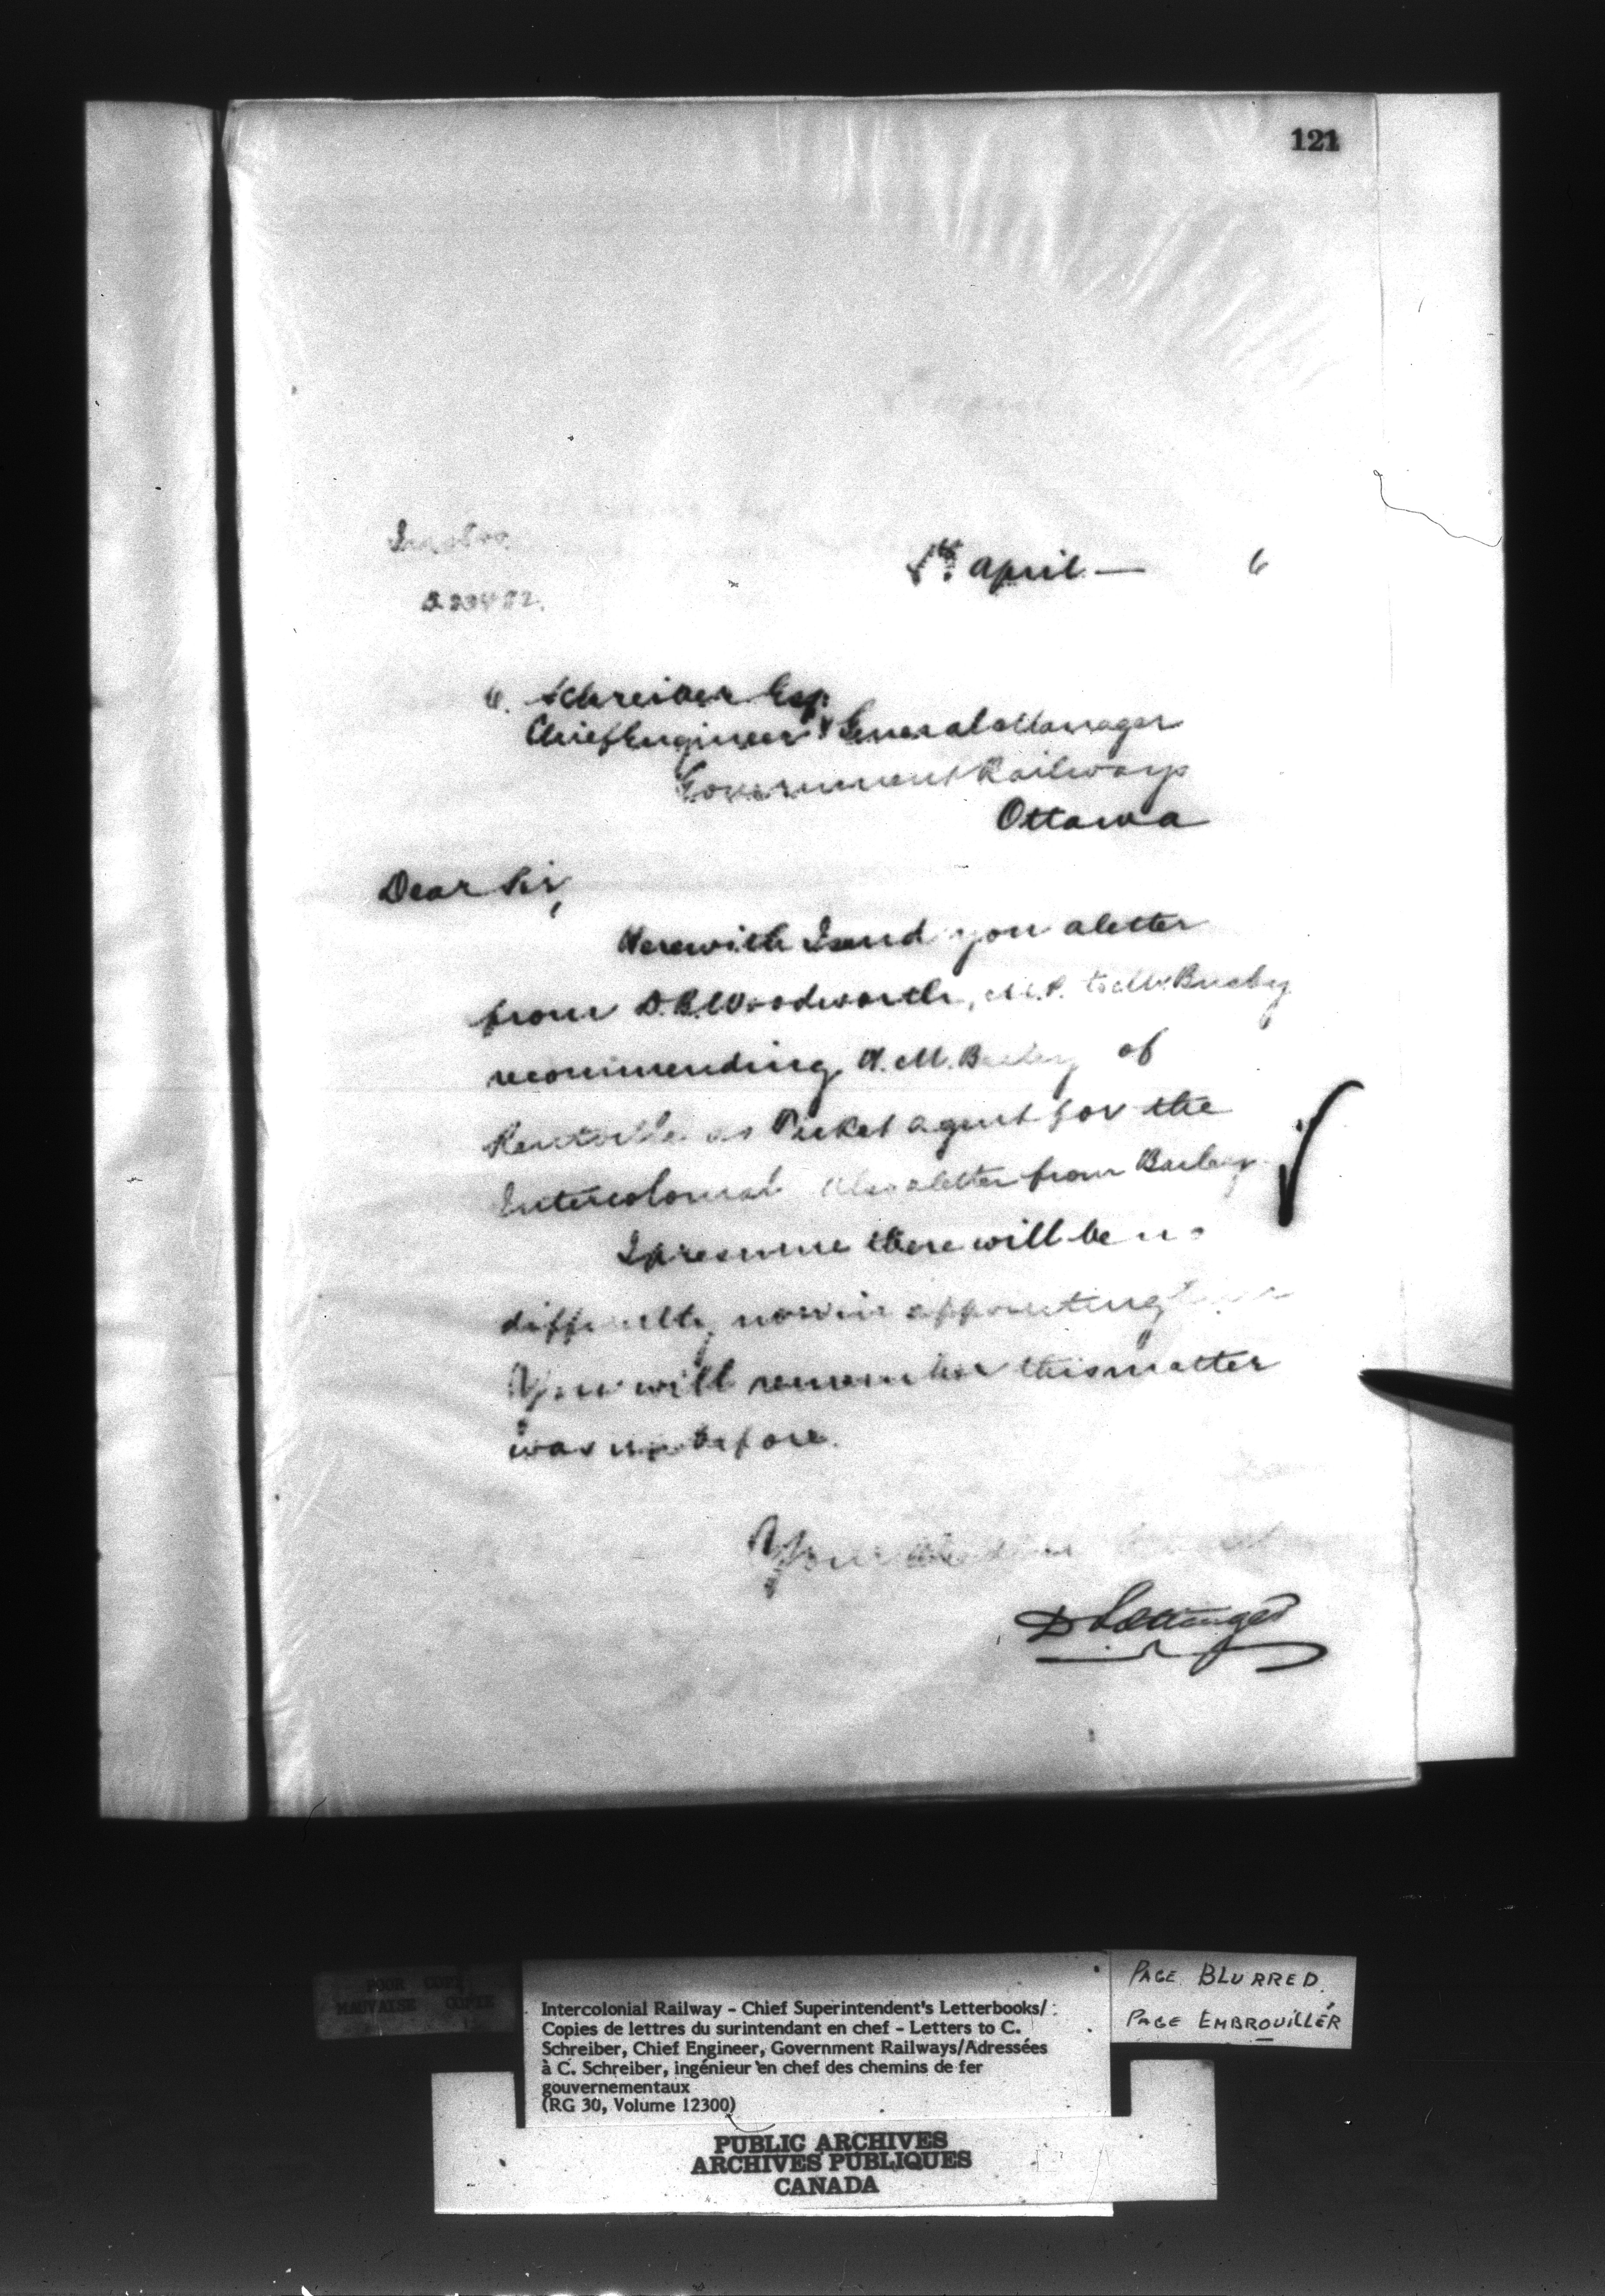 121
April — 6
C. Schreiber Esq.
Chief Engineer & General Manager
Government Railways
Ottawa
Dear Sir,
Herewith I send you a letter
from D.B. Woodworth, M.P. to Mr. Busby
recommending M. of
Kentville as Ticket agent for the
Intercolonial Also a letter from
I presume there will be no
difficulty now in appointing
You will remember this matter
was up before.
D Pottinger
POOR COPY
MAUVAISE COPIE
PAGE BLURRED
PAGE EMBROUILLÉR
Intercolonial Railway - Chief Superintendent's Letterbooks/
Copies de lettres du surintendant en chef - Letters to C.
Schreiber, Chief Engineer, Government Railways/Adressées
à C. Schreiber, ingénieur en chef des chemins de fer
gouvernementaux
(RG 30, Volume 12300)
PUBLIC ARCHIVES
ARCHIVES PUBLIQUES
CANADA